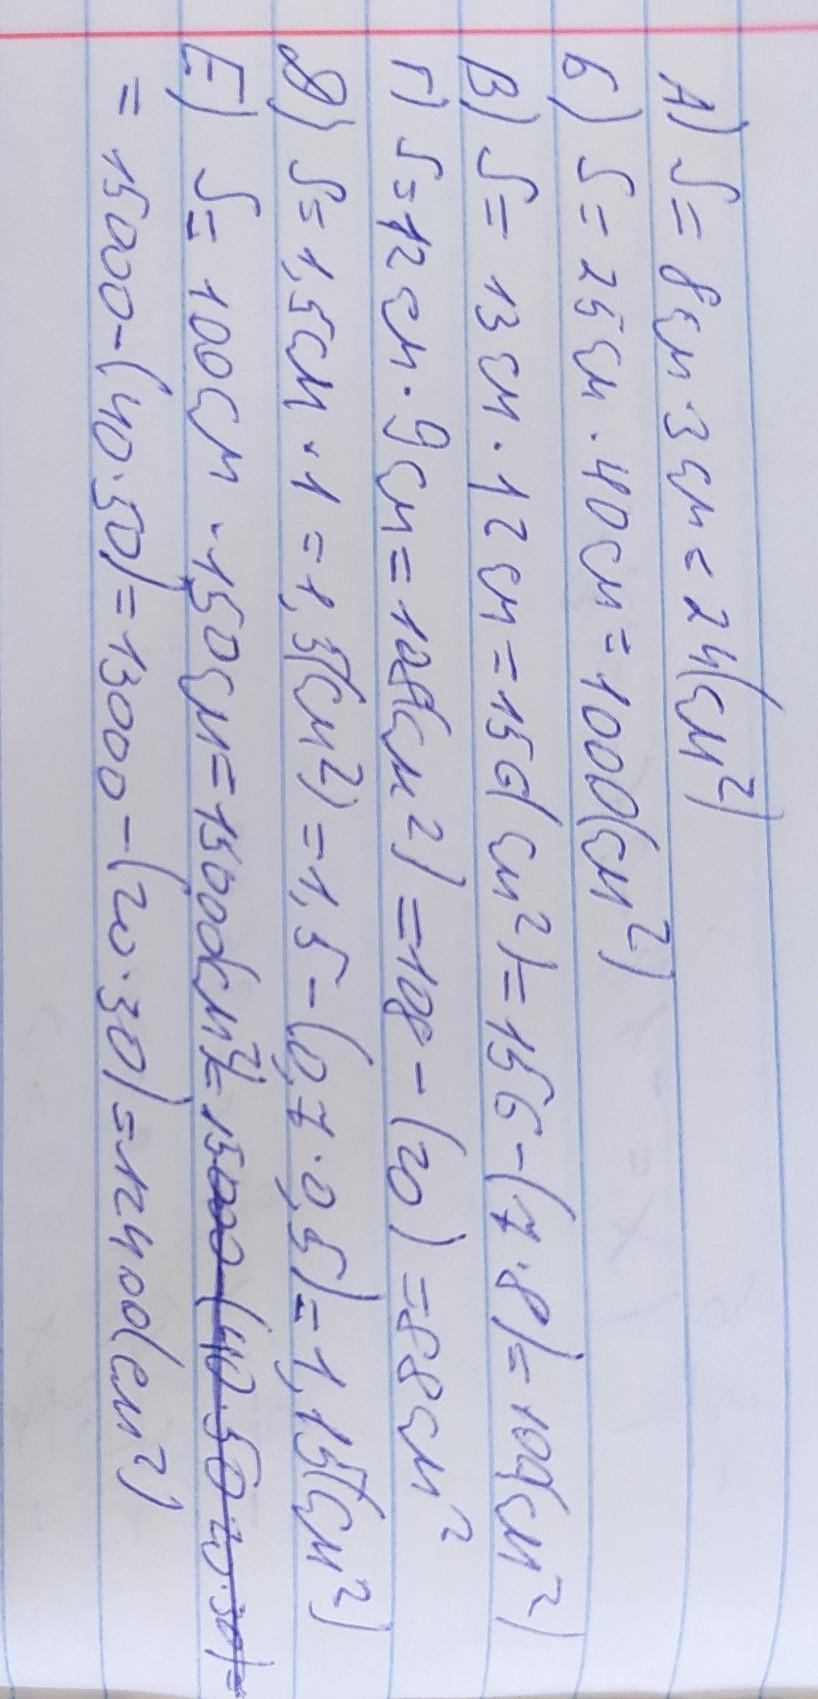 А) S = 8см · 3см = 24(см²)
Б) S = 25см · 40см = 1000(см²)
В) S = 13см · 12см = 156(см²) = 156 - (7 · 8) = 100(см²)
Г) S = 12см · 9см = 108(см²) = 108 - (20) = 88см²
Д) S = 1,5см · 1 = 1,5(см²) = 1,5 - (0,7 · 0,5) = 1,15(см²)
Е) S = 100см · 150см = 15000(см²) = 15000 - (40 · 50 - 20 · 30) =
= 15000 - (40 · 50) = 13000 - (20 · 30) = 12400(см²)